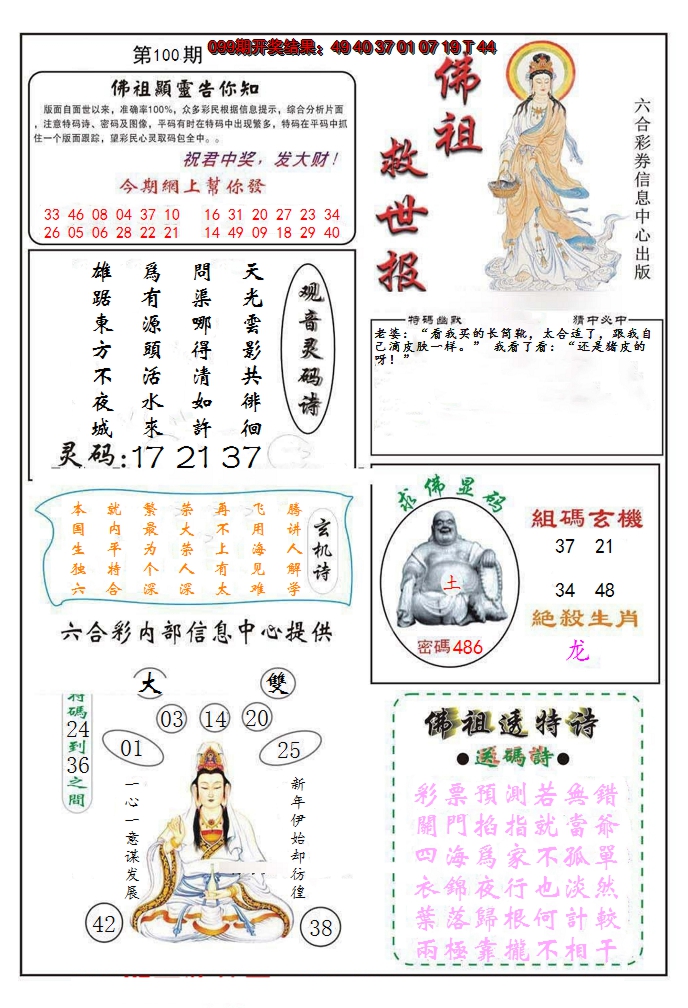 第100期
099期开奖结果：49 40 37 01 07 19 T 44
佛祖顯靈告你知
版面自面世以来，准确率100%，众多彩民根据信息提示，综合分析片面
，注意特码诗、密码及图像，平码有时在特码中出现繁多，特码在平码中抓
住一个版面跟踪，望彩民心灵取码包全中。。
祝君中奖，发大财！
今期網上幫你發
33 46 08 04 37 10 16 31 20 27 23 34
26 05 06 28 22 21 14 49 09 18 29 40
佛祖
救世报
六合彩券信息中心出版
观音灵码诗
天光雲影共徘徊
問渠哪得清如許
爲有源頭活水來
雄踞東方不夜城
灵码:17 21 37
特碼幽默 猜中必中
老婆：“看我买的长筒靴，太合适了，跟我自
己滴皮肤一样。” 我看了看：“还是猪皮的
呀！”
玄机诗
腾讲人解学
飞用海见难
再不上有太
荣大荣人深
繁最为个深
就内平特合
本国生独六
六合彩内部信息中心提供
求佛显码
土
密碼486
組碼玄機
37 21
34 48
絶殺生肖
龙
大 雙
特碼24到36之間
03 14 20
01 25
新年伊始却彷徨
一心一意谋发展
42 38
佛祖透特诗
●送碼詩●
彩票預測若無錯
開門掐指就當爺
四海爲家不孤單
衣錦夜行也淡然
葉落歸根何計較
兩極靠攏不相干